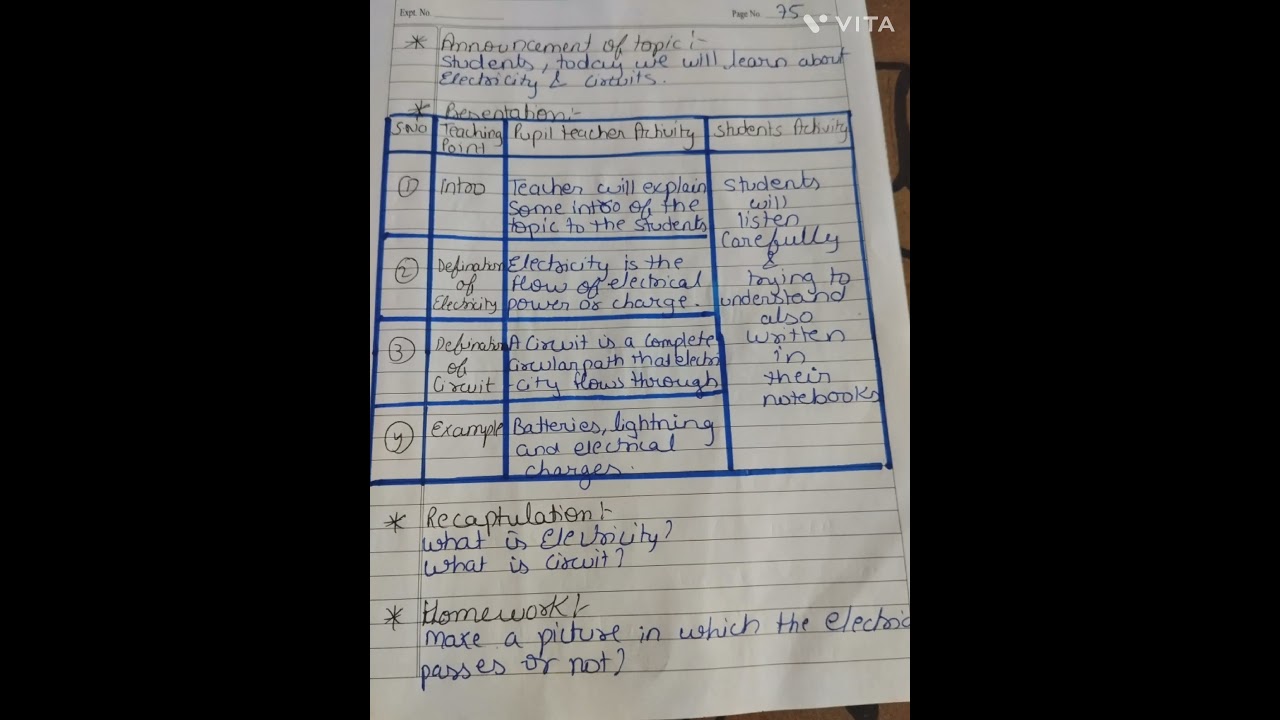 Expt. No.
Page No. 75
VITA
* Announcement of topic :-
Students, today we will learn about
Electricity & Circuits.
* Presentation:-
S.NO Teaching Point Pupil teacher Activity Students Activity
① Intro
Teacher will explain
Some intro of the
topic to the students
② Defination
of
Electricity
Electricity is the
flow of electrical
power or charge.
③ Defination
of
Circuit
A Circuit is a complete
Circular path that electri
-city flows through
④ Example
Batteries, lightning
and electrical
charges.
Students
will
listen
Carefully
&
trying to
understand
also
written
in
their
notebooks
* Recaptulation:-
What is Electricity?
What is Circuit?
* Homework:-
Make a picture in which the electric
passes or not?